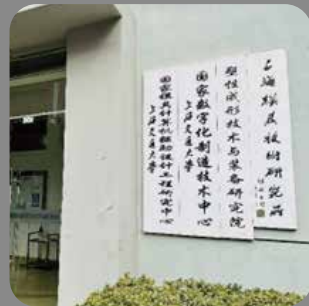 上海模具技術研究所
塑性成形技术与装备研究院
国家数字化制造技术中心
上海交通大学
国家模具计算机辅助设计工程研究中心
上海交通大学